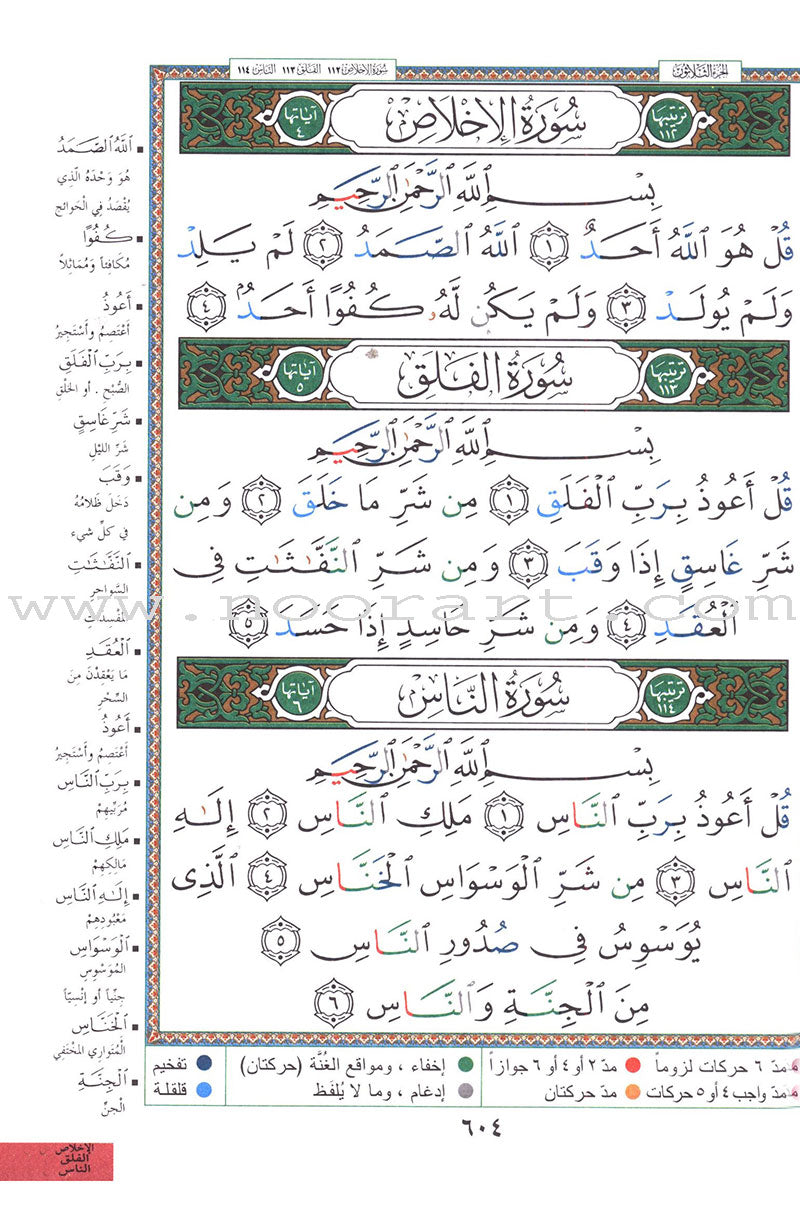 سُورَةُ الإِخْلَاصِ ١١٢ الفَلَق ١١٣ النَّاس ١١٤
الجُزءُ الثَّلَاثُونَ
ترتيبها ١١٢
سُورَةُ الإِخْلَاصِ
آياتها ٤
بِسْمِ ٱللَّهِ ٱلرَّحْمَٰنِ ٱلرَّحِيمِ
قُلْ هُوَ ٱللَّهُ أَحَدٌ ١ ٱللَّهُ ٱلصَّمَدُ ٢ لَمْ يَلِدْ
وَلَمْ يُولَدْ ٣ وَلَمْ يَكُن لَّهُۥ كُفُوًا أَحَدٌۢ ٤
ترتيبها ١١٣
سُورَةُ الفَلَقِ
آياتها ٥
بِسْمِ ٱللَّهِ ٱلرَّحْمَٰنِ ٱلرَّحِيمِ
قُلْ أَعُوذُ بِرَبِّ ٱلْفَلَقِ ١ مِن شَرِّ مَا خَلَقَ ٢ وَمِن
شَرِّ غَاسِقٍ إِذَا وَقَبَ ٣ وَمِن شَرِّ ٱلنَّفَّٰثَٰتِ فِى
ٱلْعُقَدِ ٤ وَمِن شَرِّ حَاسِدٍ إِذَا حَسَدَ ٥
ترتيبها ١١٤
سُورَةُ النَّاسِ
آياتها ٦
بِسْمِ ٱللَّهِ ٱلرَّحْمَٰنِ ٱلرَّحِيمِ
قُلْ أَعُوذُ بِرَبِّ ٱلنَّاسِ ١ مَلِكِ ٱلنَّاسِ ٢ إِلَٰهِ
ٱلنَّاسِ ٣ مِن شَرِّ ٱلْوَسْوَاسِ ٱلْخَنَّاسِ ٤ ٱلَّذِى
يُوَسْوِسُ فِى صُدُورِ ٱلنَّاسِ ٥
مِنَ ٱلْجِنَّةِ وَٱلنَّاسِ ٦
ٱللَّهُ ٱلصَّمَدُ
هُوَ وَحْدَهُ الَّذِي
يُقْصَدُ فِي الْحَوائجِ
كُفُوًا
مُكَافِئاً وَمُمَاثِلاً
أَعُوذُ
أَعْتَصِمُ وأَسْتَجِيرُ
بِرَبِّ ٱلْفَلَقِ
الصُّبْحِ . أو الخَلْقِ
شَرِّ غَاسِقٍ
شَرِّ الليْلِ
وَقَبَ
دَخَلَ ظَلامُهُ
في كلِّ شيء
ٱلنَّفَّٰثَٰتِ
السَّواحِرِ
المُفْسِدَاتِ
ٱلْعُقَدِ
مَا يَعْقِدْنَ مِنَ
السِّحْرِ
أَعُوذُ
أَعْتَصِمُ وأَسْتَجِيرُ
بِرَبِّ ٱلنَّاسِ
مُرَبِّيهِمْ
مَلِكِ ٱلنَّاسِ
مَالِكِهِمْ
إِلَٰهِ ٱلنَّاسِ
مَعْبُودِهِمْ
ٱلْوَسْوَاسِ
المُوَسْوِسِ
جِنِّياً أو إنْسِيّاً
ٱلْخَنَّاسِ
الْمُتَوارِي المُخْتَفِي
ٱلْجِنَّةِ
الْجِنِّ
مدّ ٦ حركات لزوماً مدّ ٢ أو ٤ أو ٦ جوازاً إخفاء ، ومواقع الغُنَّة (حركتان) تفخيم
مدّ واجب ٤ أو ٥ حركات مدّ حركتان إدغام ، وما لا يُلفَظ قلقلة
٦٠٤
الإخلاص
الفلق
الناس
www.noorart.com